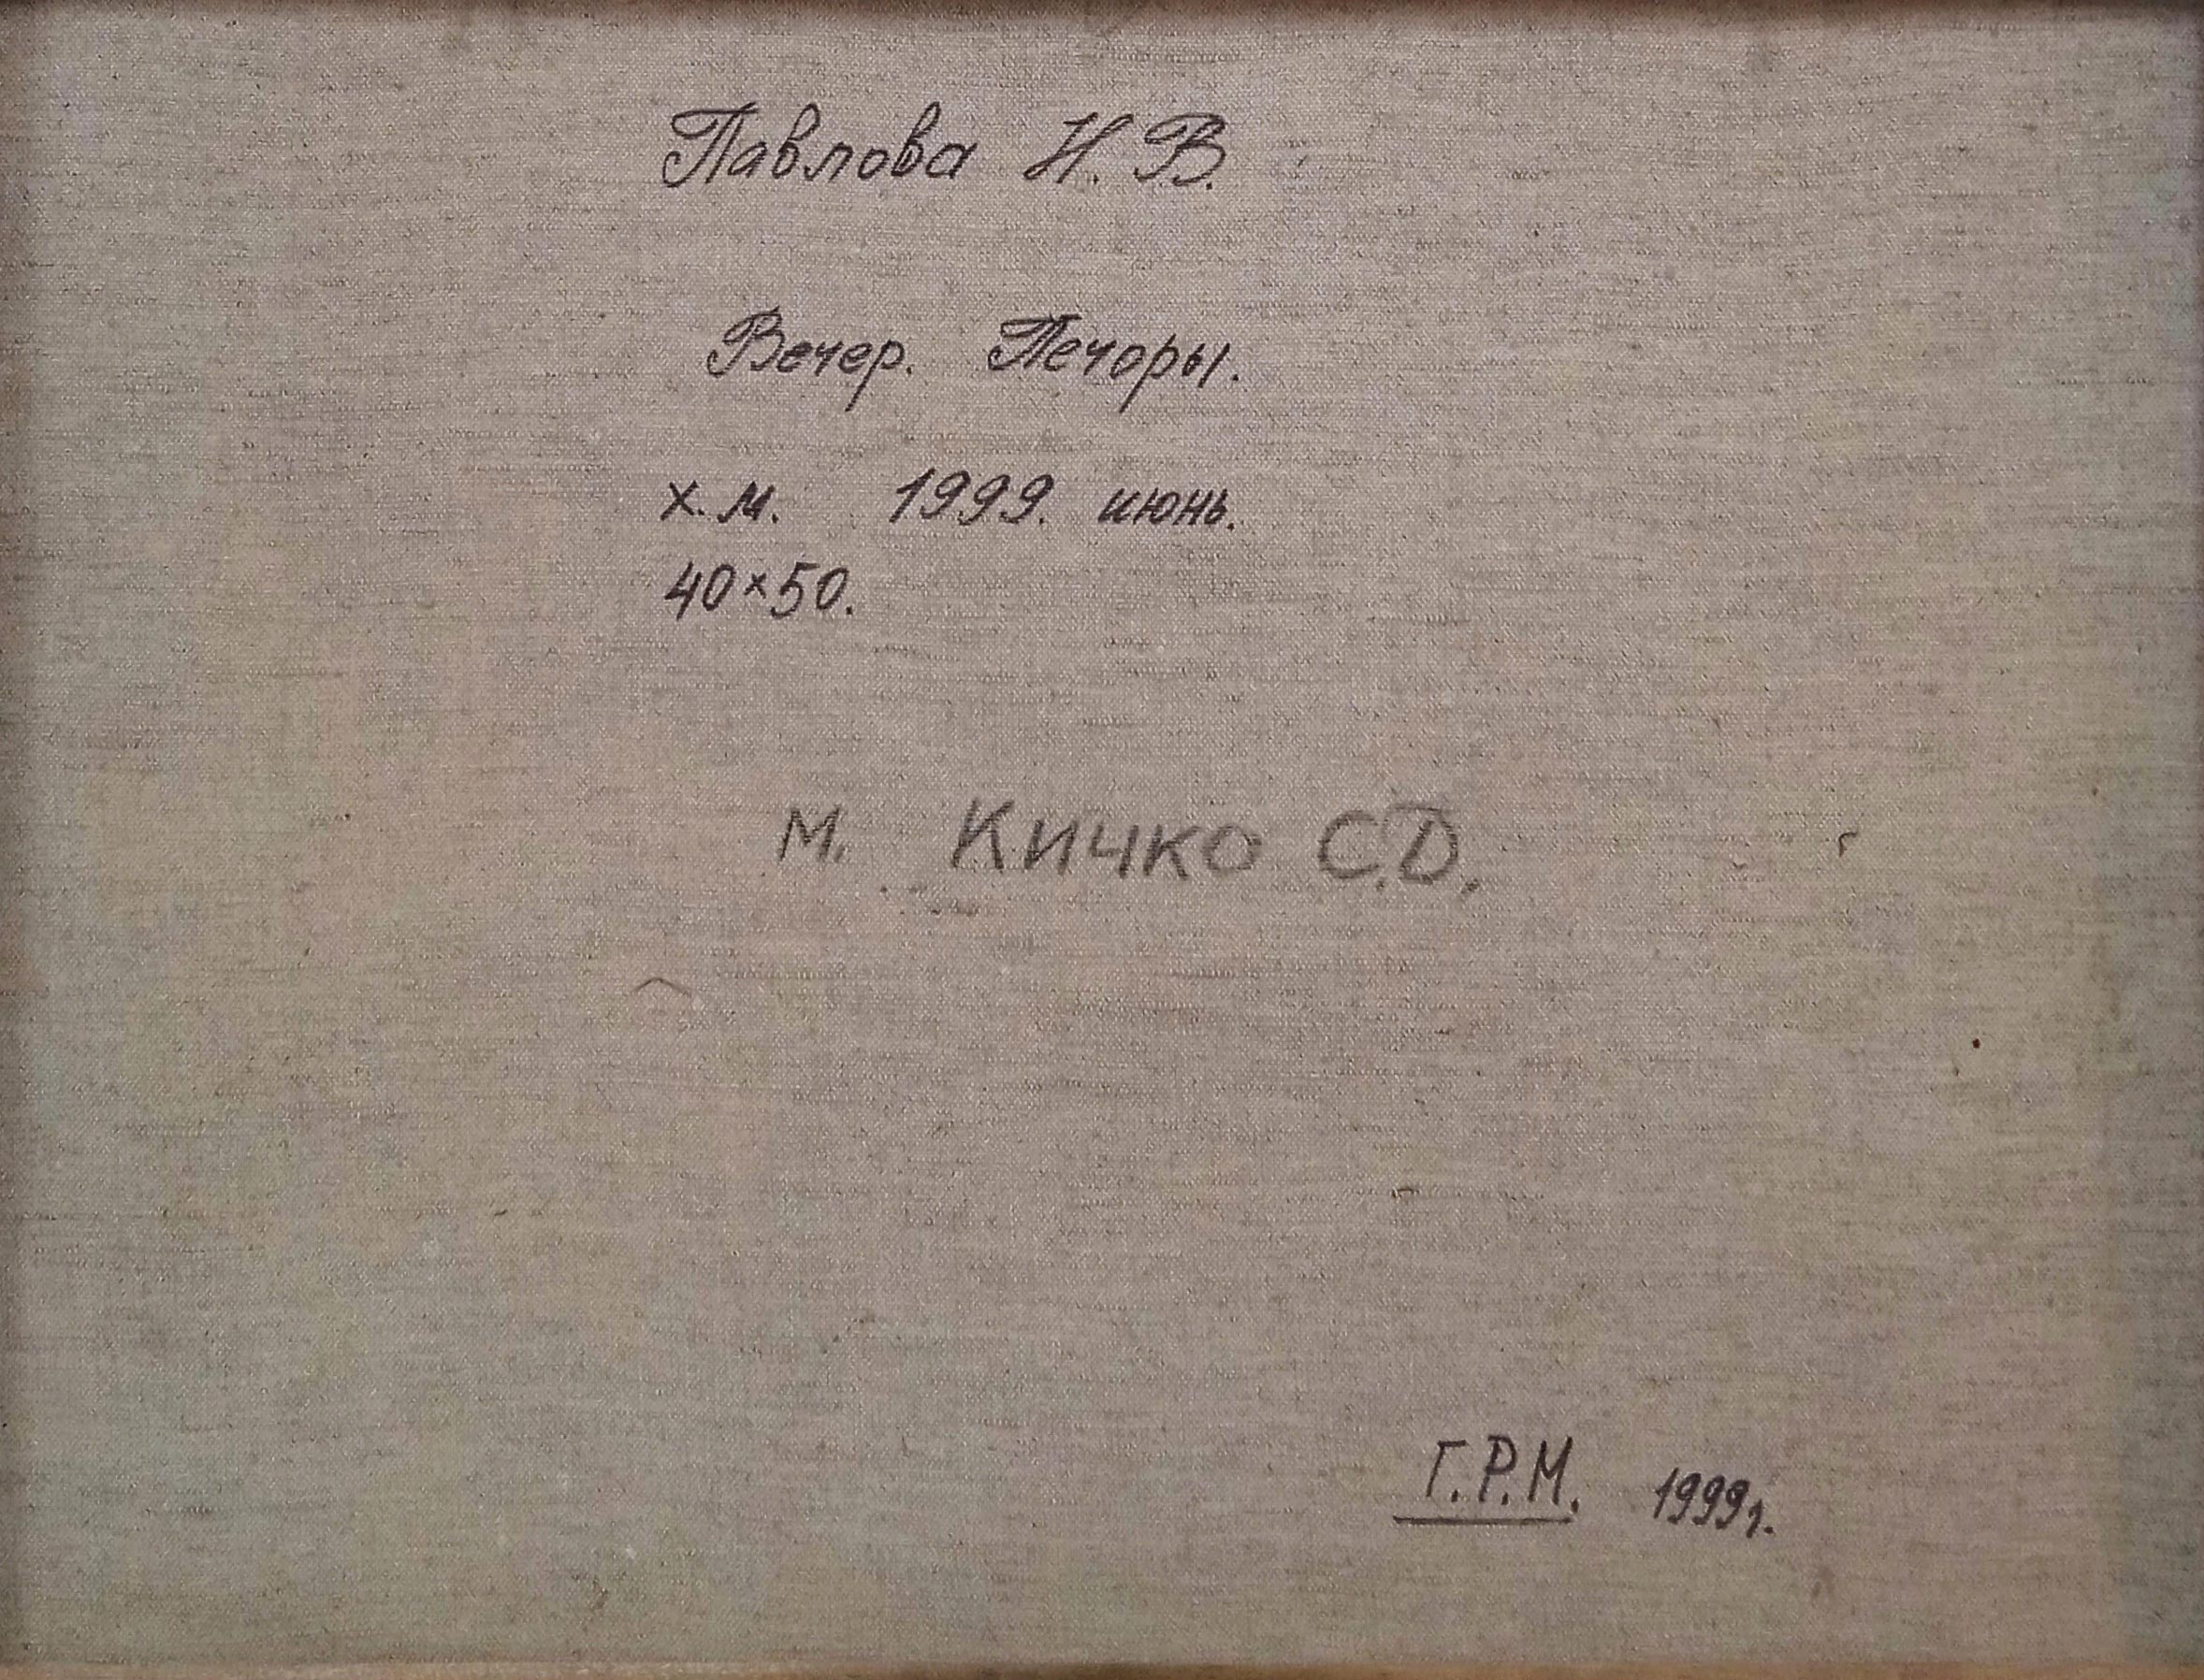 Павлова Н. В.
Вечер. Печоры.
х.м. 1999. июнь.
40×50.
м. Кичко С.D.
Г.Р.М. 1999г.